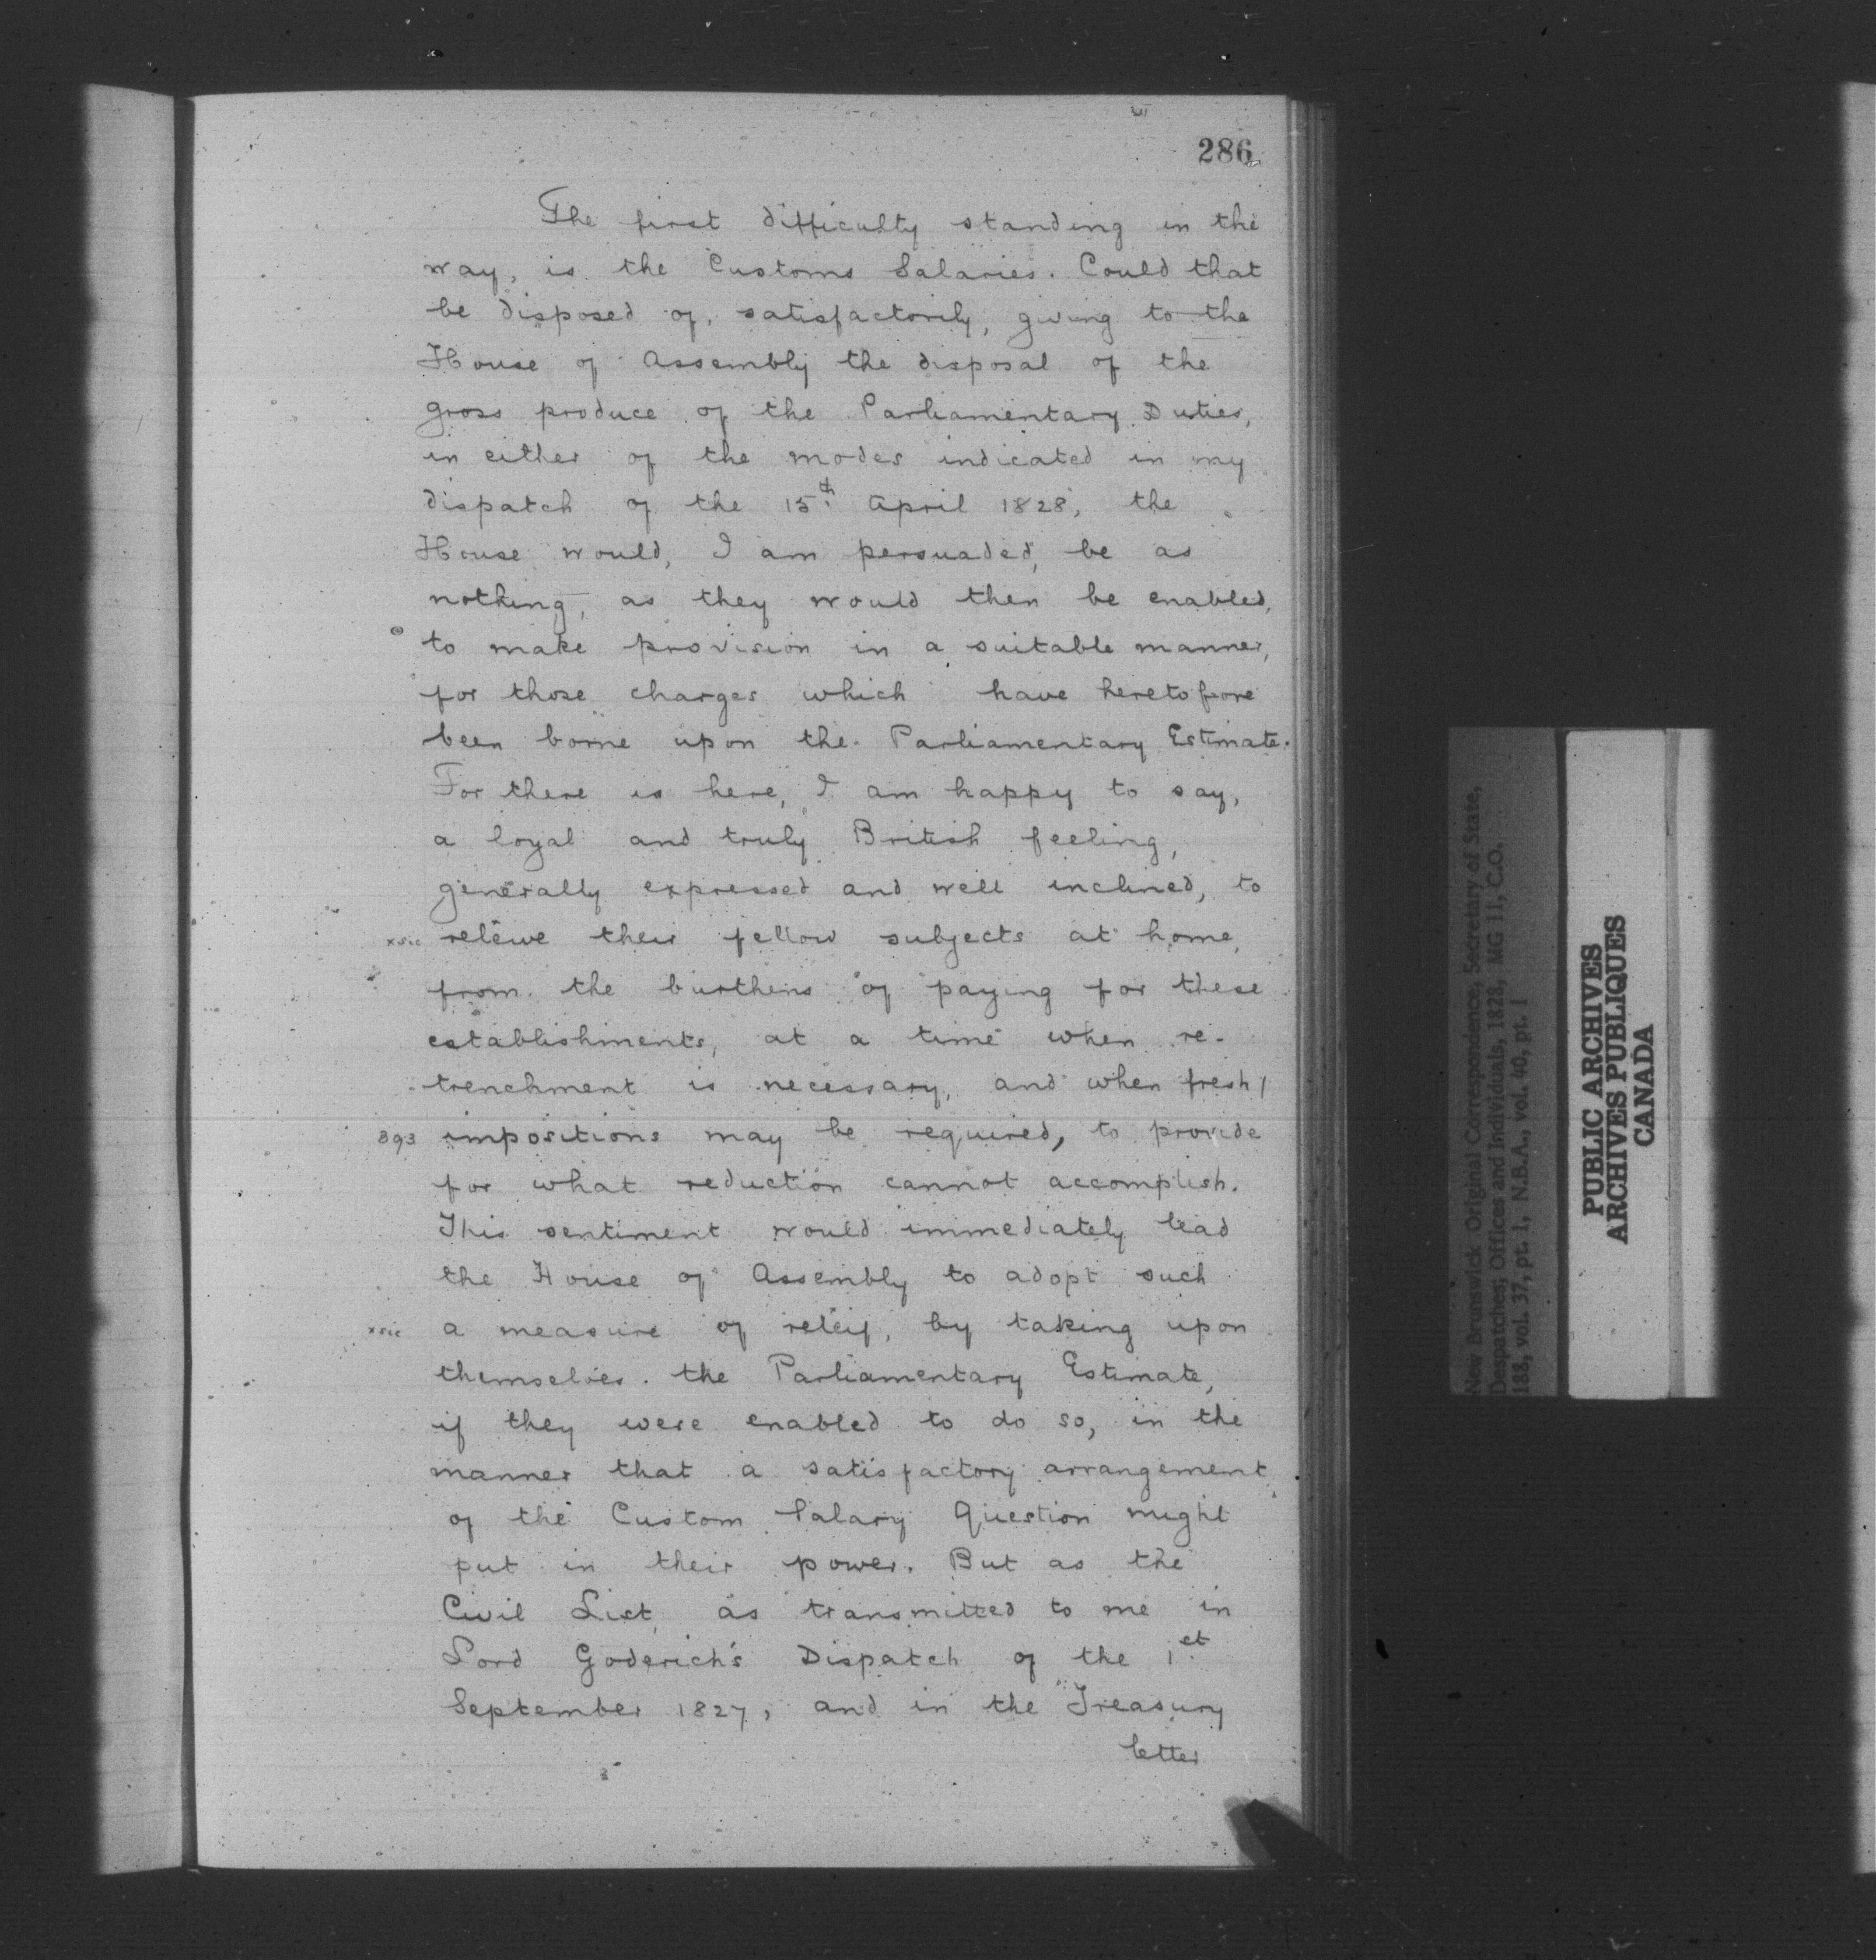 286
The first difficulty standing in the
way, is the Customs Salaries. Could that
be disposed of, satisfactorily, giving to the
House of Assembly the disposal of the
gross produce of the Parliamentary Duties,
in either of the modes indicated in my
dispatch of the 15th April 1828, the
House would, I am persuaded, be as
nothing, as they would then be enabled,
to make provision in a suitable manner,
for those charges which have heretofore
been borne upon the Parliamentary Estimate.
For there is here, I am happy to say,
a loyal and truly British feeling,
generally expressed and well inclined, to
xsic releive their fellow subjects at home,
from the burthens of paying for these
establishments, at a time when re-
trenchment is necessary, and when fresh /
393 impositions may be required, to provide
for what reduction cannot accomplish.
This sentiment would immediately lead
the House of Assembly to adopt such
xsic a measure of releif, by taking upon
themselves the Parliamentary Estimate,
if they were enabled to do so, in the
manner that a satisfactory arrangement
of the Custom Salary Question might
put in their power. But as the
Civil List, as transmitted to me in
Lord Goderich's Dispatch of the 1st
September 1827, and in the Treasury
letter
New Brunswick Original Correspondence, Secretary of State,
Despatches; Offices and Individuals, 1828, MG 11, C.O.
188, vol. 37, pt. 1, N.B.A., vol. 40, pt. 1
PUBLIC ARCHIVES
ARCHIVES PUBLIQUES
CANADA